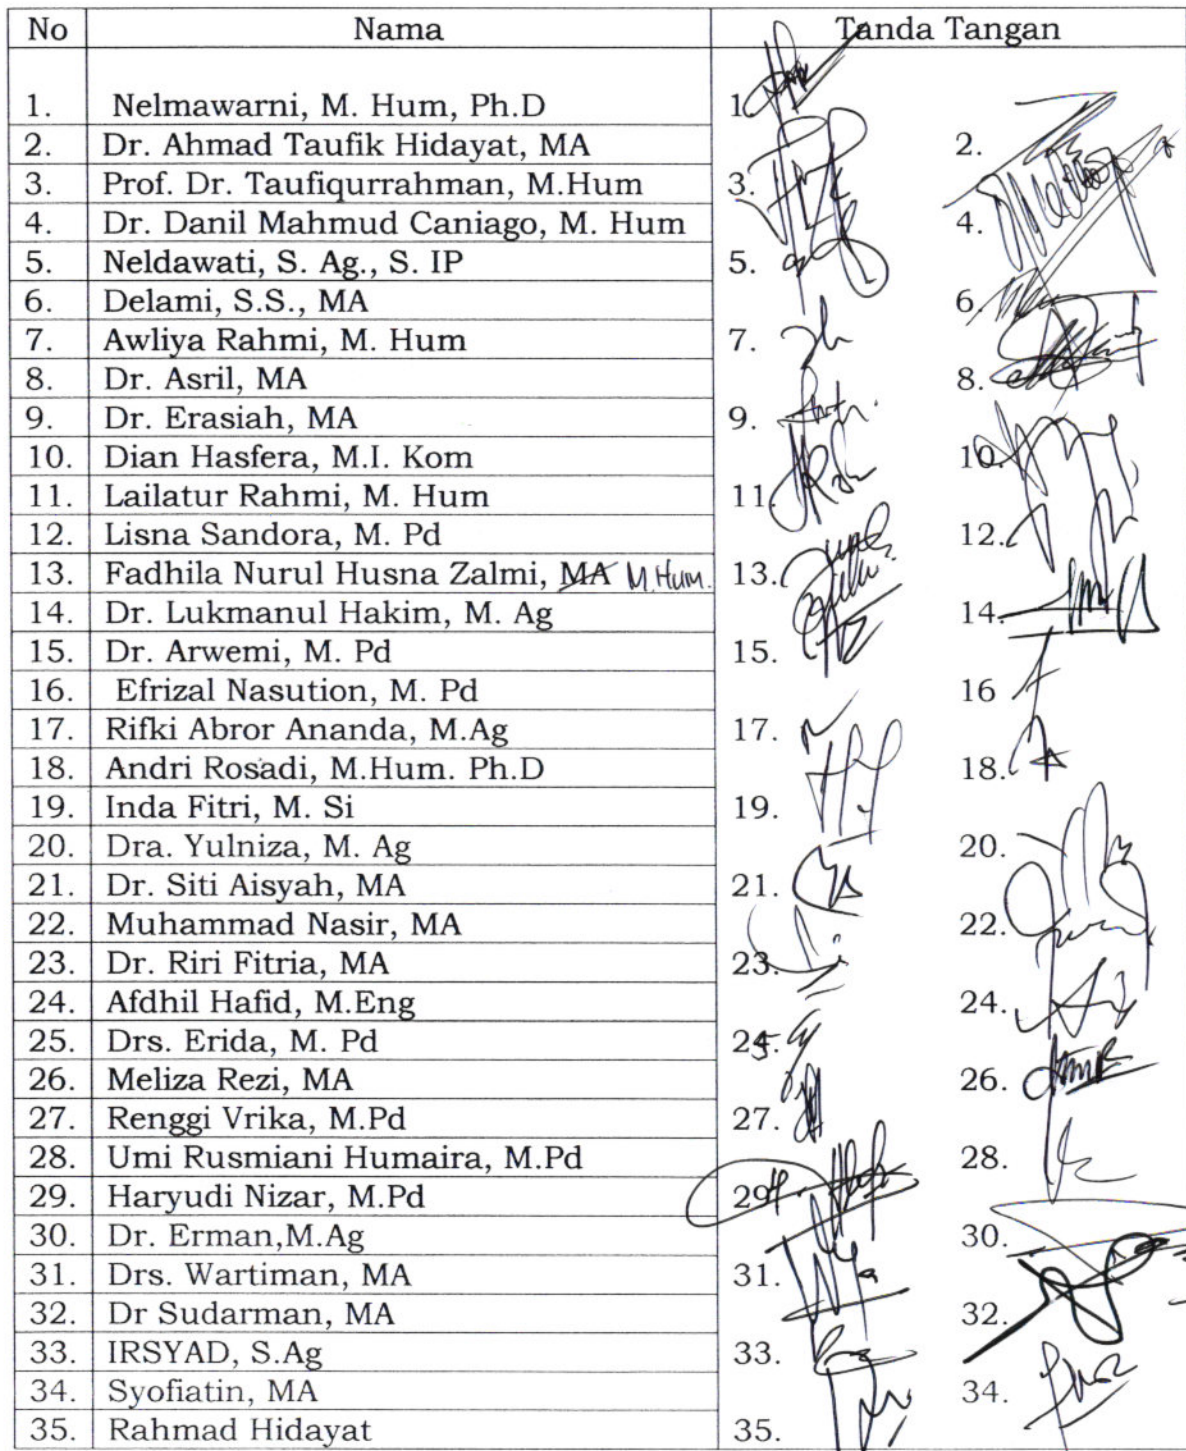 No Nama Tanda Tangan
1. Nelmawarni, M. Hum, Ph.D 1.
2. Dr. Ahmad Taufik Hidayat, MA 2.
3. Prof. Dr. Taufiqurrahman, M.Hum 3.
4. Dr. Danil Mahmud Caniago, M. Hum 4.
5. Neldawati, S. Ag., S. IP 5.
6. Delami, S.S., MA 6.
7. Awliya Rahmi, M. Hum 7.
8. Dr. Asril, MA 8.
9. Dr. Erasiah, MA 9.
10. Dian Hasfera, M.I. Kom 10.
11. Lailatur Rahmi, M. Hum 11.
12. Lisna Sandora, M. Pd 12.
13. Fadhila Nurul Husna Zalmi, MA M.Hum. 13.
14. Dr. Lukmanul Hakim, M. Ag 14.
15. Dr. Arwemi, M. Pd 15.
16. Efrizal Nasution, M. Pd 16
17. Rifki Abror Ananda, M.Ag 17.
18. Andri Rosadi, M.Hum. Ph.D 18.
19. Inda Fitri, M. Si 19.
20. Dra. Yulniza, M. Ag 20.
21. Dr. Siti Aisyah, MA 21.
22. Muhammad Nasir, MA 22.
23. Dr. Riri Fitria, MA 23.
24. Afdhil Hafid, M.Eng 24.
25. Drs. Erida, M. Pd
26. Meliza Rezi, MA 26.
27. Renggi Vrika, M.Pd 27.
28. Umi Rusmiani Humaira, M.Pd 28.
29. Haryudi Nizar, M.Pd 29.
30. Dr. Erman,M.Ag 30.
31. Drs. Wartiman, MA 31.
32. Dr Sudarman, MA 32.
33. IRSYAD, S.Ag 33.
34. Syofiatin, MA 34.
35. Rahmad Hidayat 35.